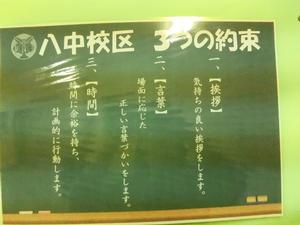 八中校区 3つの約束
一、【挨拶】
気持ちの良い挨拶をします。
二、【言葉】
場面に応じた
正しい言葉づかいをします。
三、【時間】
時間に余裕を持ち、
計画的に行動します。